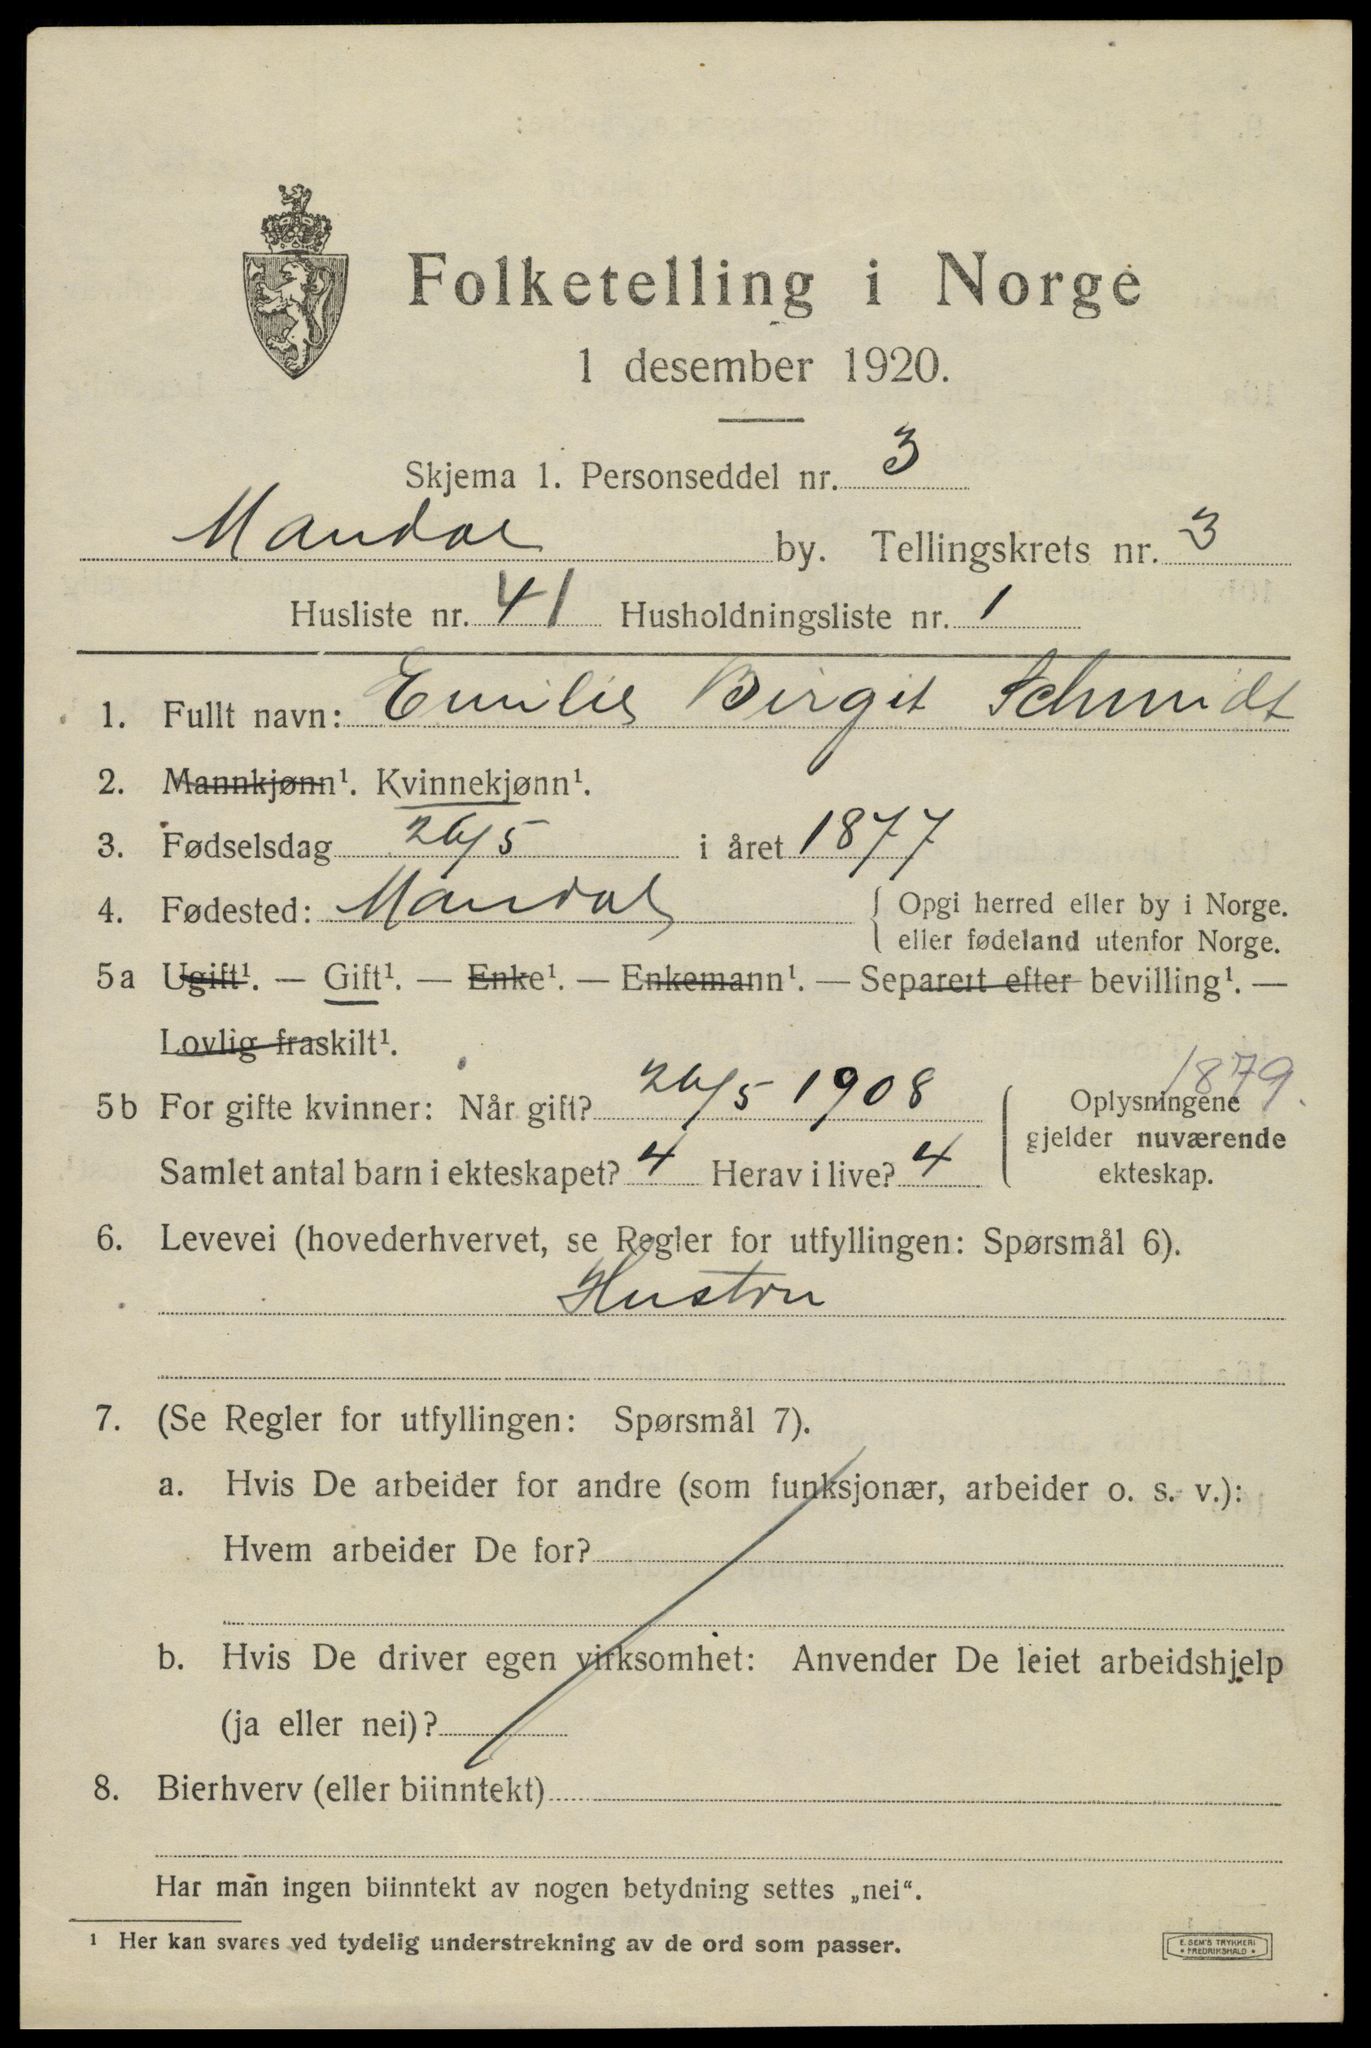 Folketelling i Norge
1 desember 1920.
Skjema 1. Personseddel nr. 3
Mandal by. Tellingskrets nr. 3
Husliste nr. 41 Husholdningsliste nr. 1
1. Fullt navn: Emilie Birgit Schmidt
2. Mannkjønn¹. Kvinnekjønn¹.
3. Fødselsdag 26/5 i året 1877
4. Fødested: Mandal { Opgi herred eller by i Norge.
eller fødeland utenfor Norge.
5a Ugift¹. — Gift¹. — Enke¹. — Enkemann¹. — Separert efter bevilling¹. —
Lovlig fraskilt¹.
1879.
5b For gifte kvinner: Når gift? 26/5 1908 { Oplysningene
gjelder nuværende
Samlet antal barn i ekteskapet? 4 Herav i live? 4
ekteskap.
6. Levevei (hovederhvervet, se Regler for utfyllingen: Spørsmål 6).
Hustru
7. (Se Regler for utfyllingen: Spørsmål 7).
a. Hvis De arbeider for andre (som funksjonær, arbeider o. s. v.):
Hvem arbeider De for?
b. Hvis De driver egen virksomhet: Anvender De leiet arbeidshjelp
(ja eller nei)?
8. Bierhverv (eller biinntekt)
Har man ingen biinntekt av nogen betydning settes „nei“.
¹ Her kan svares ved tydelig understrekning av de ord som passer.
E. SEM'S TRYKKERI
• FREDRIKSHALD •